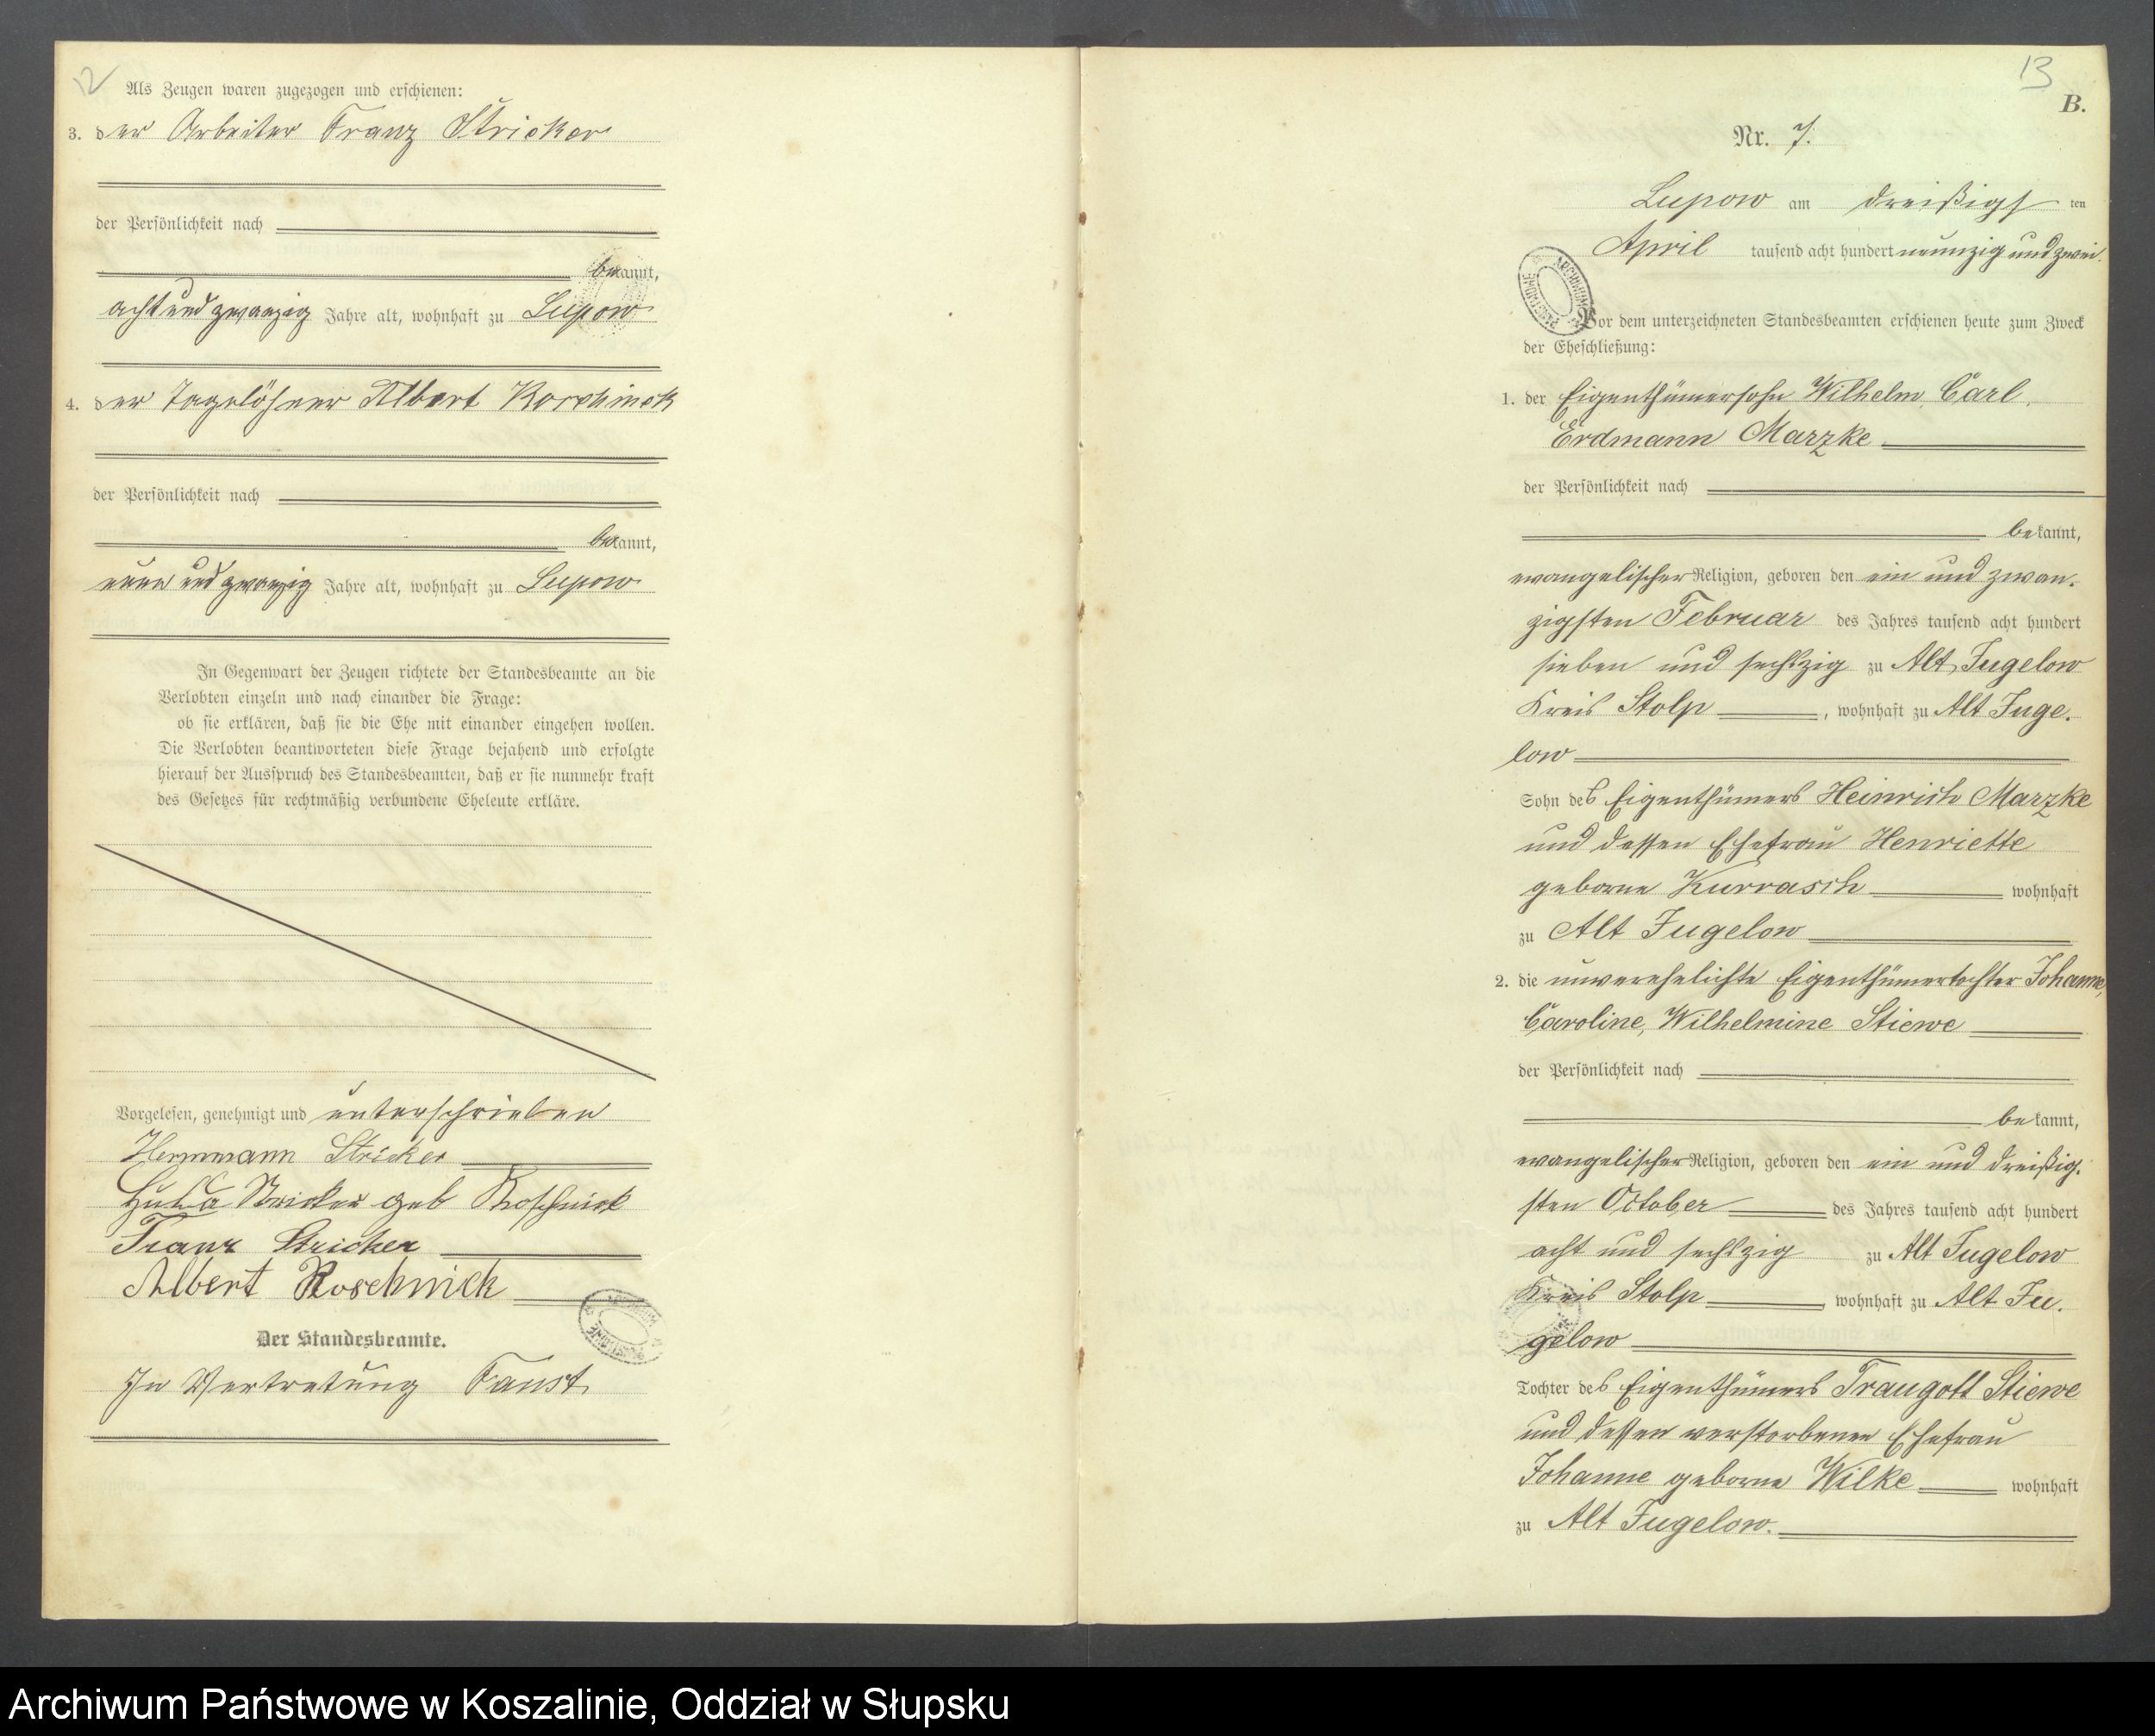 12
Als Zeugen waren zugezogen und erschienen:
3. der Arbeiter Franz Stricker
der Persönlichkeit nach
bekannt,
acht und zwanzig Jahre alt, wohnhaft zu Lupow
4. der Tagelöhner Albert Koschnick
der Persönlichkeit nach
bekannt,
neun und zwanzig Jahre alt, wohnhaft zu Lupow
In Gegenwart der Zeugen richtete der Standesbeamte an die
Verlobten einzeln und nach einander die Frage:
ob sie erklären, daß sie die Ehe mit einander eingehen wollen.
Die Verlobten beantworteten diese Frage bejahend und erfolgte
hierauf der Ausspruch des Standesbeamten, daß er sie nunmehr kraft
des Gesetzes für rechtmäßig verbundene Eheleute erkläre.
Vorgelesen, genehmigt und unterschrieben
Hermmann Stricker
Stricker geb Koschnick
Franz Stricker
Albert Koschnick
Der Standesbeamte.
In Vertretung Faust
13
B.
Nr. 7.
Lupow am dreißigsten
April tausend acht hundert neunzig und zwei.
Vor dem unterzeichneten Standesbeamten erschienen heute zum Zweck
der Eheschließung:
1. der Eigenthümersohn Wilhelm, Carl,
Erdmann Marzke
der Persönlichkeit nach
bekannt,
evangelischer Religion, geboren den ein und zwan-
zigsten Februar des Jahres tausend acht hundert
sieben und sechszig zu Alt Jugelow
Kreis Stolp, wohnhaft zu Alt Juge-
low
Sohn des Eigenthümers Heinrich Marzke
und dessen Ehefrau Henriette
geborne Kurrasch wohnhaft
zu Alt Jugelow
2. die unverehelichte Eigenthümertochter Johanne,
Caroline, Wilhelmine Stiewe
der Persönlichkeit nach
bekannt,
evangelischer Religion, geboren den ein und dreißig-
sten October des Jahres tausend acht hundert
acht und sechszig zu Alt Jugelow
Kreis Stolp, wohnhaft zu Alt Ju-
gelow
Tochter des Eigenthümers Traugott Stiewe
und dessen verstorbenen Ehefrau
Johanne geborne Wilke wohnhaft
zu Alt Jugelow.
Archiwum Państwowe w Koszalinie, Oddział w Słupsku